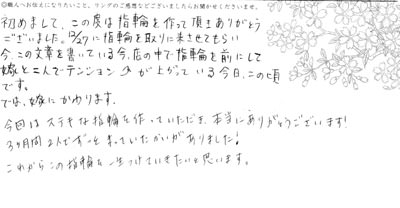 ◎職人へお伝えになりたいこと、リングのご感想などございましたらお聞かせくださいませ。
初めまして、この度は指輪を作って頂きありがとう
ございました。12/27に指輪を取りに来させてもらい
今、この文章を書いている今、店の中で指輪を前にして
嫁と二人でテンションが上がっている今日、この頃
です。
では、嫁にかわります。
今回はステキな指輪を作っていただき、本当にありがとうございます!
3ヶ月間2人でずーっとまっていたかいがありました!
これからこの指輪を一生つけていきたいと思います。